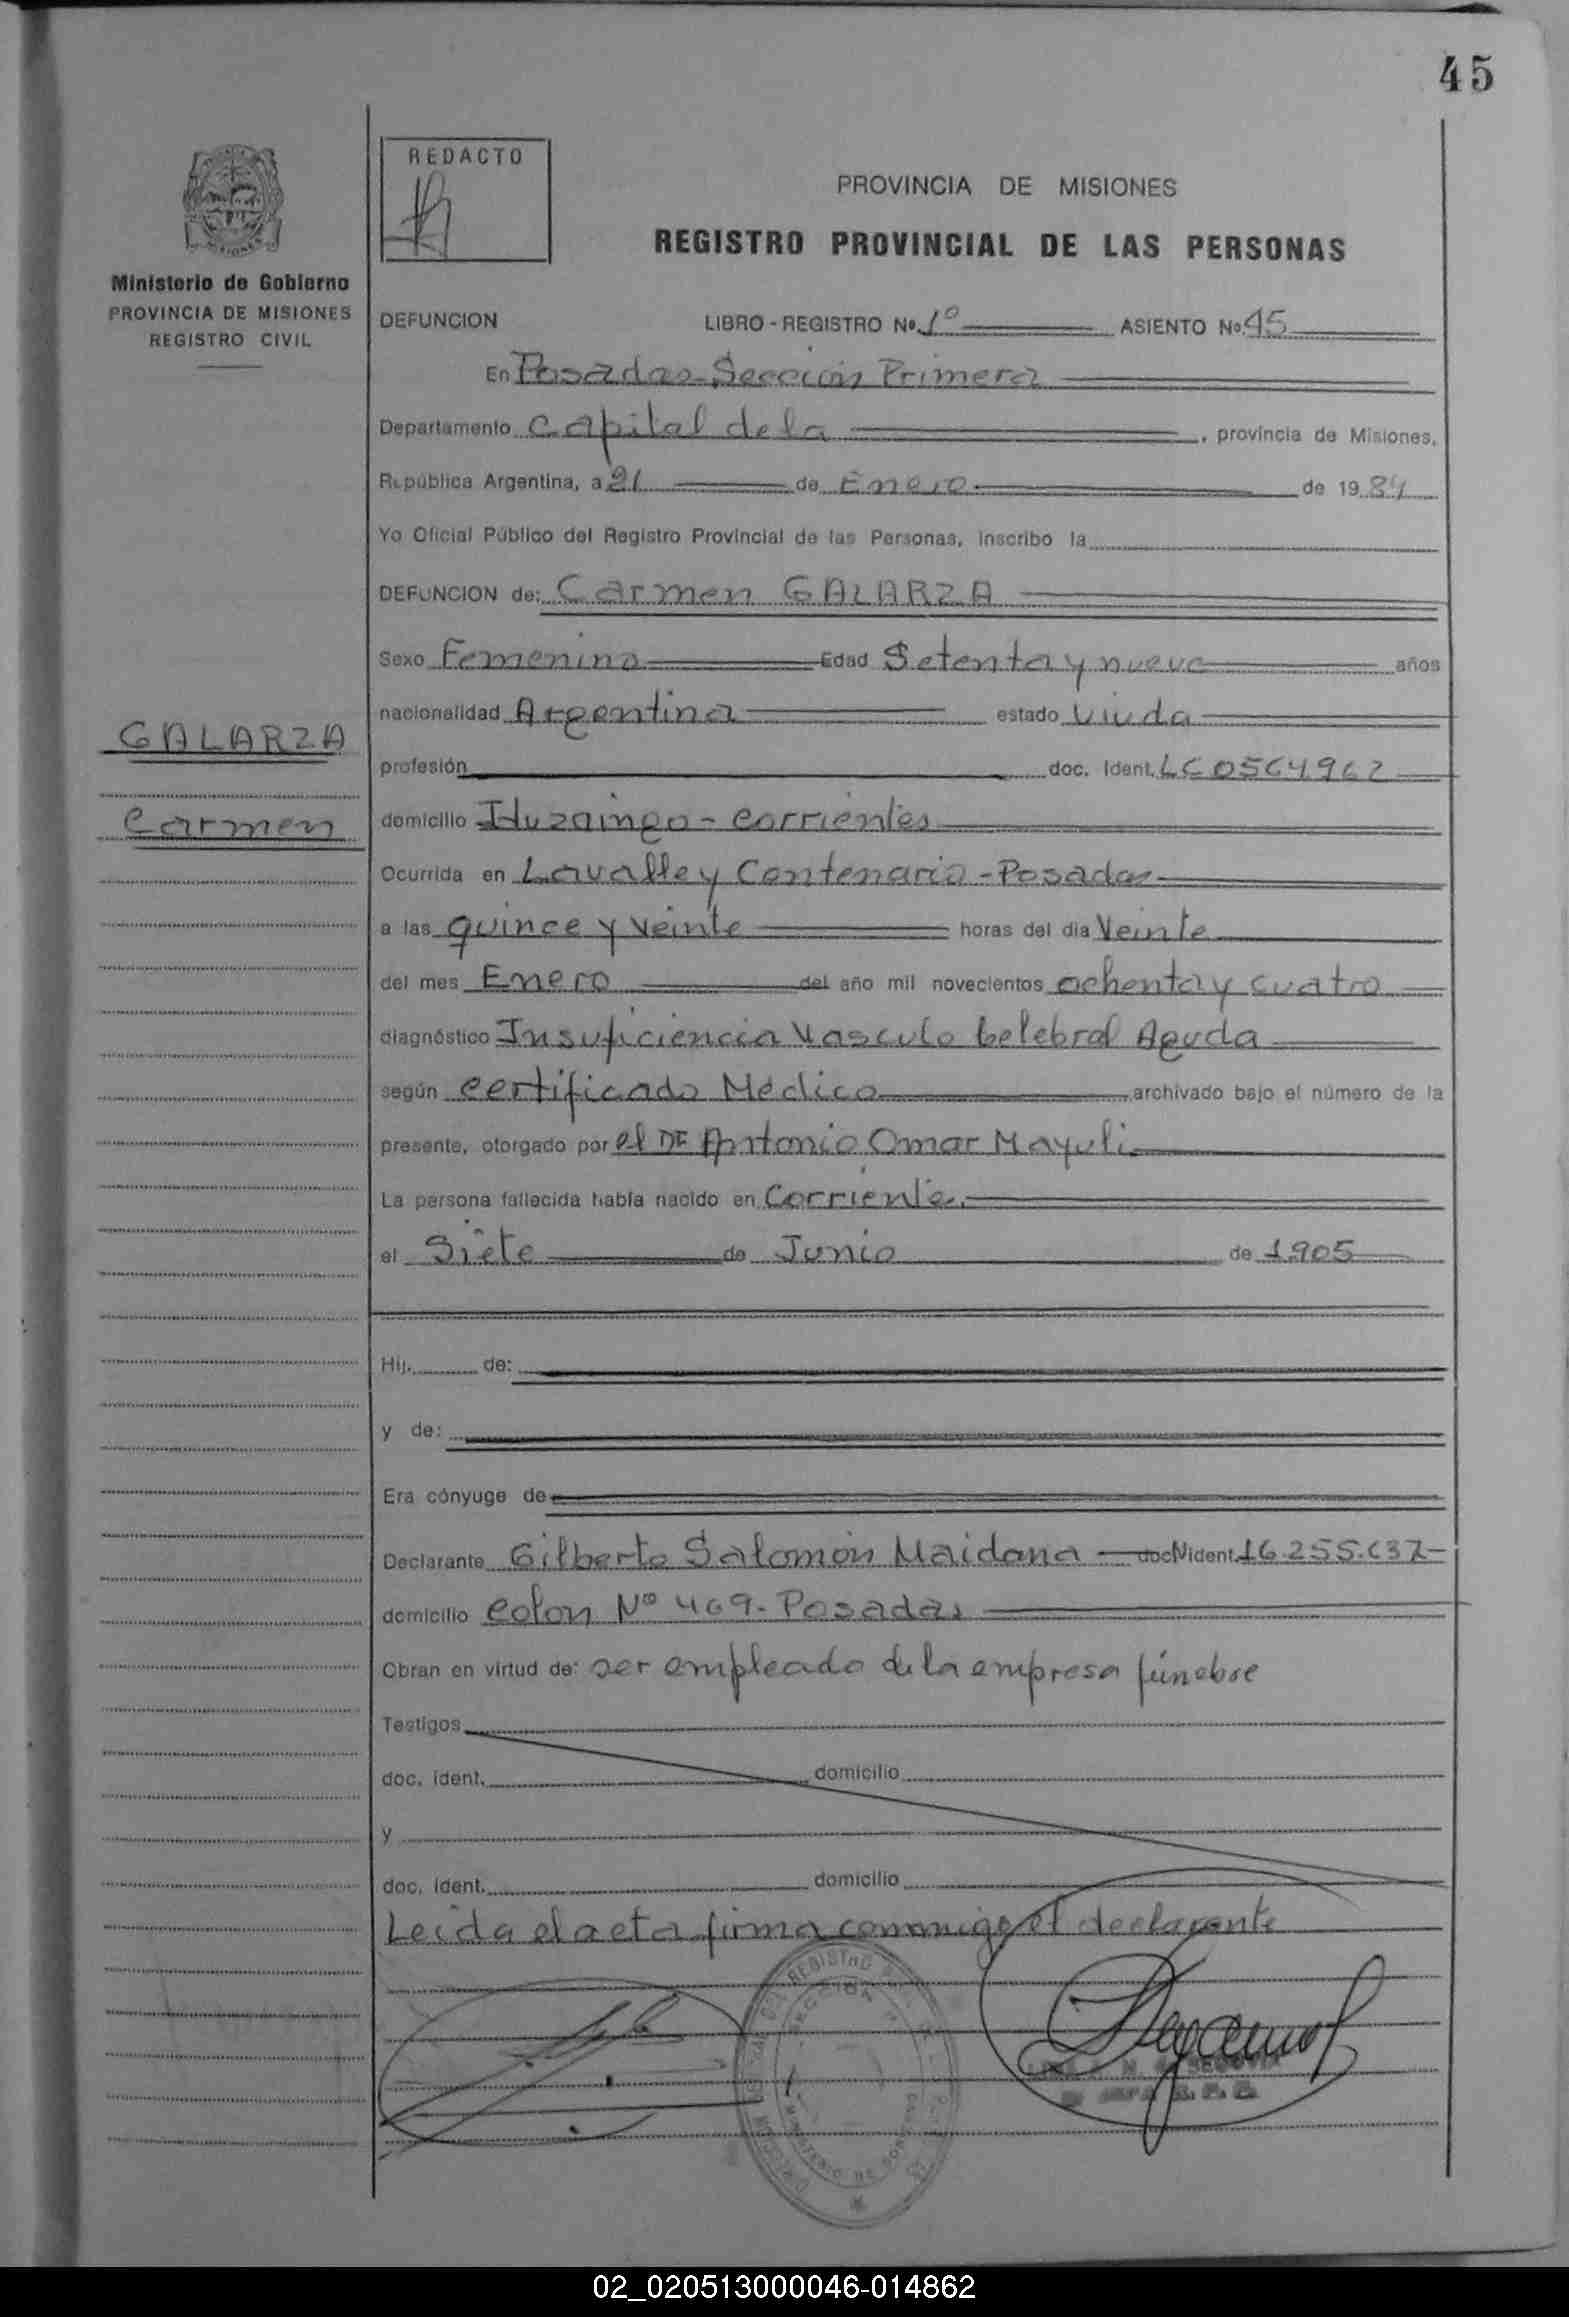 45
REDACTO
PROVINCIA DE MISIONES
REGISTRO PROVINCIAL DE LAS PERSONAS
Ministerio de Gobierno
PROVINCIA DE MISIONES
REGISTRO CIVIL
DEFUNCION LIBRO - REGISTRO Nº 1º ASIENTO Nº 45
En Posadas-Sección Primera
Departamento Capital de la , provincia de Misiones,
República Argentina, a 21 de Enero de 1984
Yo Oficial Público del Registro Provincial de las Personas, inscribo la
DEFUNCION de: Carmen GALARZA
Sexo Femenino Edad Setenta y nueve años
nacionalidad Argentina estado Viuda
GALARZA
Carmen
profesión doc. Ident.
domicilio Ituzaingo - Corrientes
Ocurrida en Lavalle y Centenario - Posadas
a las quince y veinte horas del día Veinte
del mes Enero del año mil novecientos ochenta y cuatro
diagnóstico Insuficiencia Vasculo Celebral Aguda
según certificado Médico archivado bajo el número de la
presente, otorgado por el Dr Antonio Omar Mayuli
La persona fallecida había nacido en Corrientes
el Siete de Junio de 1905
Hij. de:
y de:
Era cónyuge de
Declarante Gilberto Salomón Maidana doc. ident.
domicilio Colon Nº 469 - Posadas
Obran en virtud de: ser empleado de la empresa fúnebre
Testigos
doc. ident. domicilio
y
doc. ident. domicilio
Leida el acta firma conmigo el declarante
02_020513000046-014862